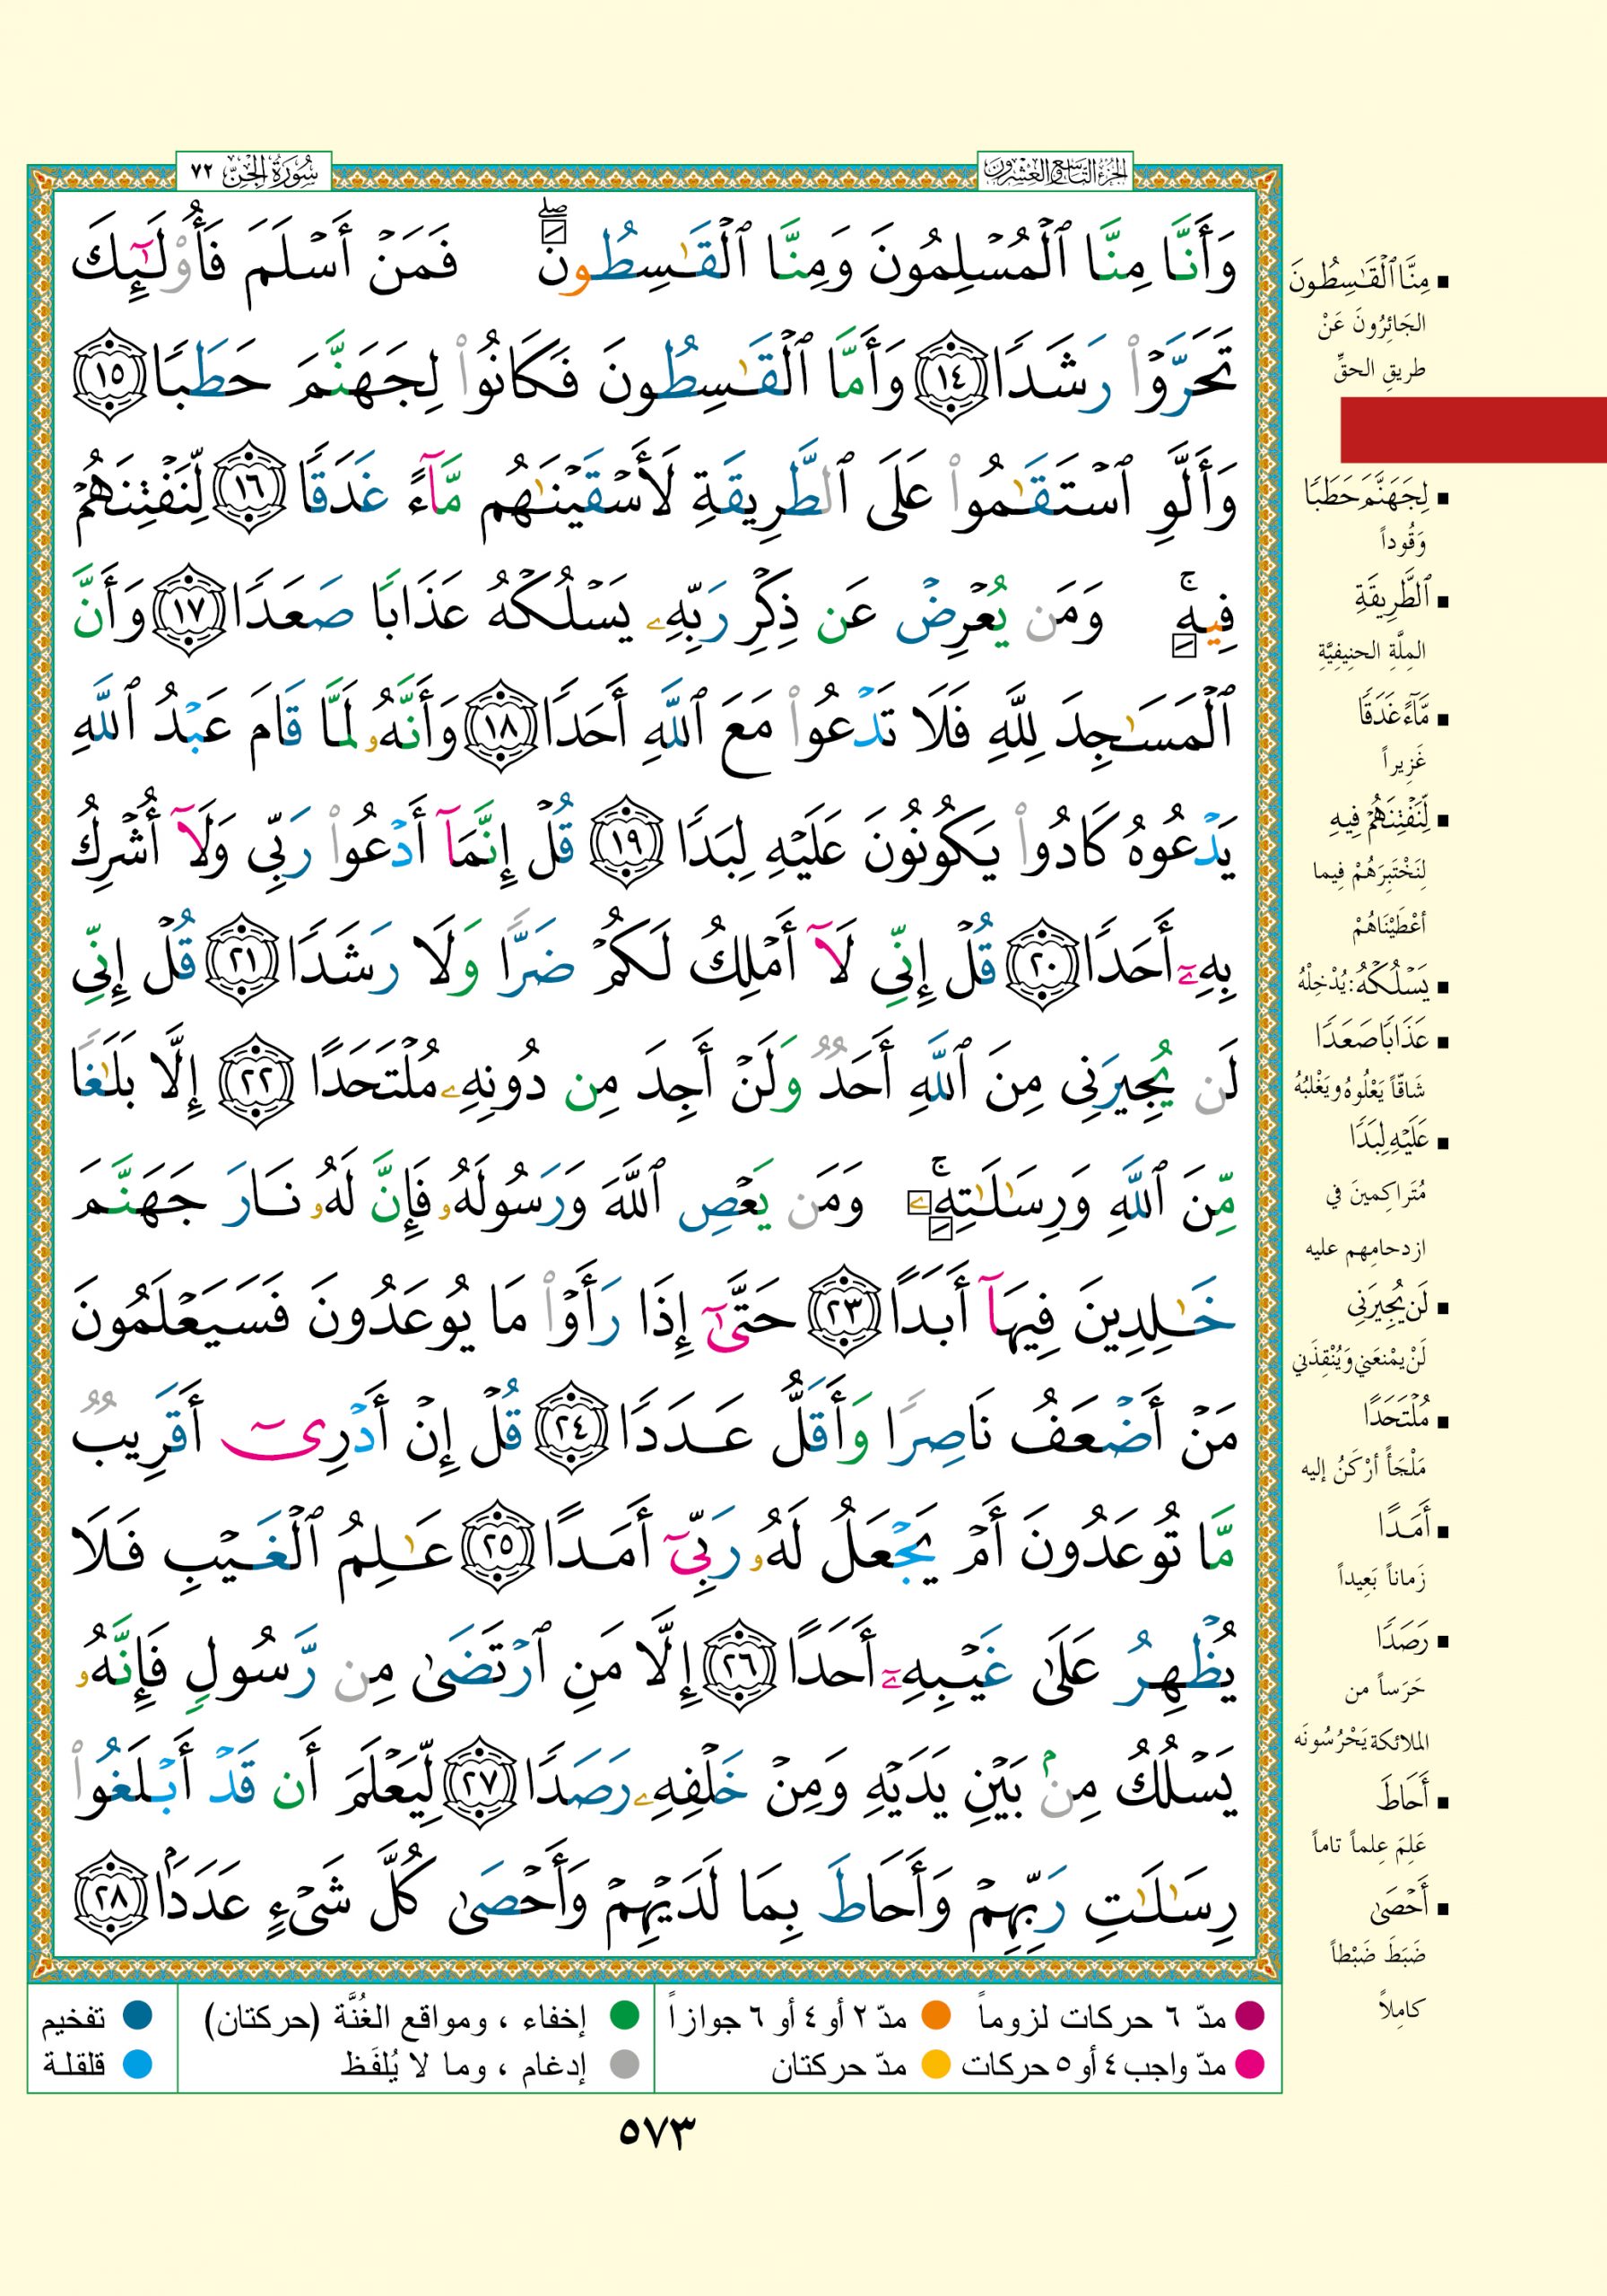 الجزء التاسع والعشرون
سُورَةُ الجِنّ ٧٢
وَأَنَّا مِنَّا ٱلۡمُسۡلِمُونَ وَمِنَّا ٱلۡقَٰسِطُونَۖ فَمَنۡ أَسۡلَمَ فَأُوْلَٰٓئِكَ
تَحَرَّوۡاْ رَشَدٗا ١٤ وَأَمَّا ٱلۡقَٰسِطُونَ فَكَانُواْ لِجَهَنَّمَ حَطَبٗا ١٥
وَأَلَّوِ ٱسۡتَقَٰمُواْ عَلَى ٱلطَّرِيقَةِ لَأَسۡقَيۡنَٰهُم مَّآءً غَدَقٗا ١٦ لِّنَفۡتِنَهُمۡ
فِيهِۚ وَمَن يُعۡرِضۡ عَن ذِكۡرِ رَبِّهِۦ يَسۡلُكۡهُ عَذَابٗا صَعَدٗا ١٧ وَأَنَّ
ٱلۡمَسَٰجِدَ لِلَّهِ فَلَا تَدۡعُواْ مَعَ ٱللَّهِ أَحَدٗا ١٨ وَأَنَّهُۥ لَمَّا قَامَ عَبۡدُ ٱللَّهِ
يَدۡعُوهُ كَادُواْ يَكُونُونَ عَلَيۡهِ لِبَدٗا ١٩ قُلۡ إِنَّمَآ أَدۡعُواْ رَبِّي وَلَآ أُشۡرِكُ
بِهِۦٓ أَحَدٗا ٢٠ قُلۡ إِنِّي لَآ أَمۡلِكُ لَكُمۡ ضَرّٗا وَلَا رَشَدٗا ٢١ قُلۡ إِنِّي
لَن يُجِيرَنِي مِنَ ٱللَّهِ أَحَدٞ وَلَنۡ أَجِدَ مِن دُونِهِۦ مُلۡتَحَدًا ٢٢ إِلَّا بَلَٰغٗا
مِّنَ ٱللَّهِ وَرِسَٰلَٰتِهِۦۚ وَمَن يَعۡصِ ٱللَّهَ وَرَسُولَهُۥ فَإِنَّ لَهُۥ نَارَ جَهَنَّمَ
خَٰلِدِينَ فِيهَآ أَبَدًا ٢٣ حَتَّىٰٓ إِذَا رَأَوۡاْ مَا يُوعَدُونَ فَسَيَعۡلَمُونَ
مَنۡ أَضۡعَفُ نَاصِرٗا وَأَقَلُّ عَدَدٗا ٢٤ قُلۡ إِنۡ أَدۡرِيٓ أَقَرِيبٞ
مَّا تُوعَدُونَ أَمۡ يَجۡعَلُ لَهُۥ رَبِّيٓ أَمَدًا ٢٥ عَٰلِمُ ٱلۡغَيۡبِ فَلَا
يُظۡهِرُ عَلَىٰ غَيۡبِهِۦٓ أَحَدًا ٢٦ إِلَّا مَنِ ٱرۡتَضَىٰ مِن رَّسُولٖ فَإِنَّهُۥ
يَسۡلُكُ مِنۢ بَيۡنِ يَدَيۡهِ وَمِنۡ خَلۡفِهِۦ رَصَدٗا ٢٧ لِّيَعۡلَمَ أَن قَدۡ أَبۡلَغُواْ
رِسَٰلَٰتِ رَبِّهِمۡ وَأَحَاطَ بِمَا لَدَيۡهِمۡ وَأَحۡصَىٰ كُلَّ شَيۡءٍ عَدَدَۢا ٢٨
مِنَّا ٱلۡقَٰسِطُونَ
الجَائِرُونَ عَنْ
طريقِ الحقِّ
لِجَهَنَّمَ حَطَبٗا
وَقُوداً
ٱلطَّرِيقَةِ
المِلَّةِ الحنِيفِيَّةِ
مَّآءً غَدَقٗا
غَزِيراً
لِّنَفۡتِنَهُمۡ فِيهِ
لِنَخْتَبِرَهُمْ فِيما
أعْطَيْنَاهُمْ
يَسۡلُكۡهُ: يُدْخِلْهُ
عَذَابٗا صَعَدٗا
شَاقّاً يَعْلُوهُ ويَغْلبُهُ
عَلَيۡهِ لِبَدٗا
مُتَراكِمينَ في
ازدحامِهم عليه
لَن يُجِيرَنِي
لَنْ يمْنعَني وَيُنْقِذَني
مُلۡتَحَدًا
مَلْجَأً أرْكَنُ إليه
أَمَدًا
زَماناً بَعِيداً
رَصَدٗا
حَرَساً من
الملائكة يَحْرُسُونَه
أَحَاطَ
عَلِمَ عِلماً تاماً
أَحۡصَىٰ
ضَبَطَ ضَبْطاً
كامِلاً
مدّ ٦ حركات لزوماً
مدّ ٢ أو ٤ أو ٦ جوازاً
إخفاء ، ومواقع الغُنَّة (حركتان)
تفخيم
مدّ واجب ٤ أو ٥ حركات
مدّ حركتان
إدغام ، وما لا يُلفَظ
قلقلة
٥٧٣